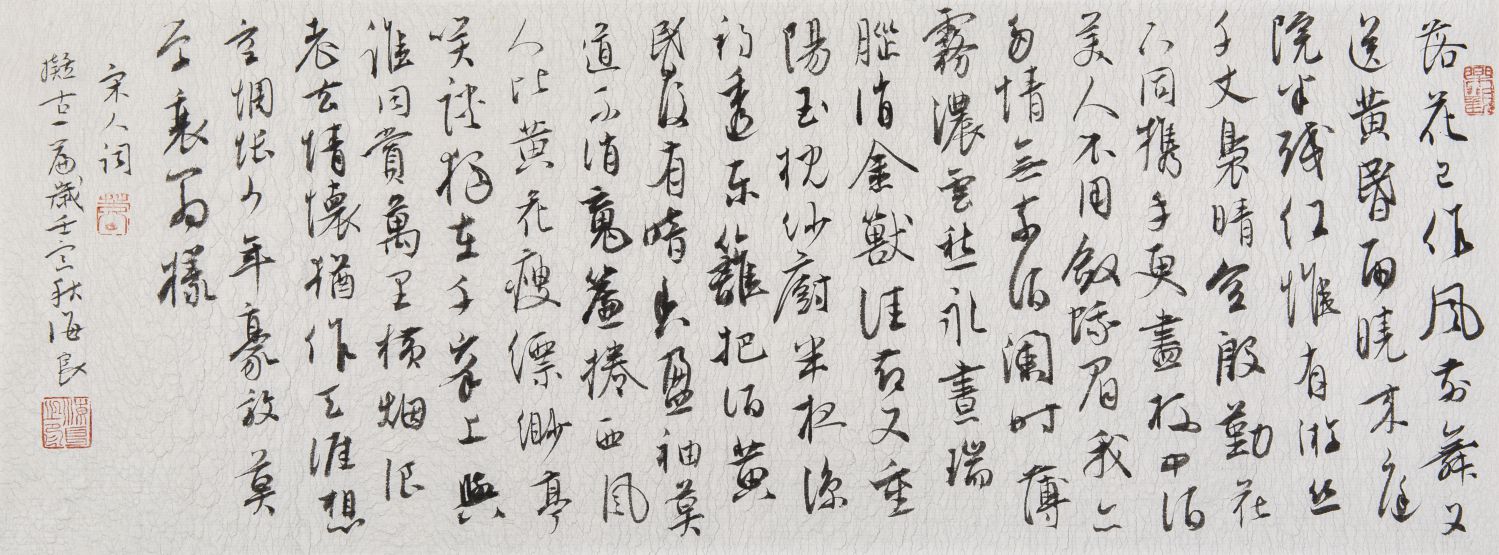 落花已作風前舞又
送黄昏雨曉來庭
院半殘红惟有游丝
千丈裊晴空殷勤花
下同攜手更盡杯中酒
美人不用斂蛾眉我亦
多情無奈酒闌時薄
霧濃雲愁永晝瑞
腦消金獸佳節又重
陽玉枕紗廚半夜涼
初透東籬把酒黄
昏後有暗香盈袖莫
道不消魂簾捲西風
人比黄花瘦縹緲亭
咲談獨在千峯上與
誰同賞萬里橫烟浪
老去情懷猶作天涯想
空惆悵少年豪放莫
学衰翁樣
宋人詞
擬古一篇歲壬寅秋海良